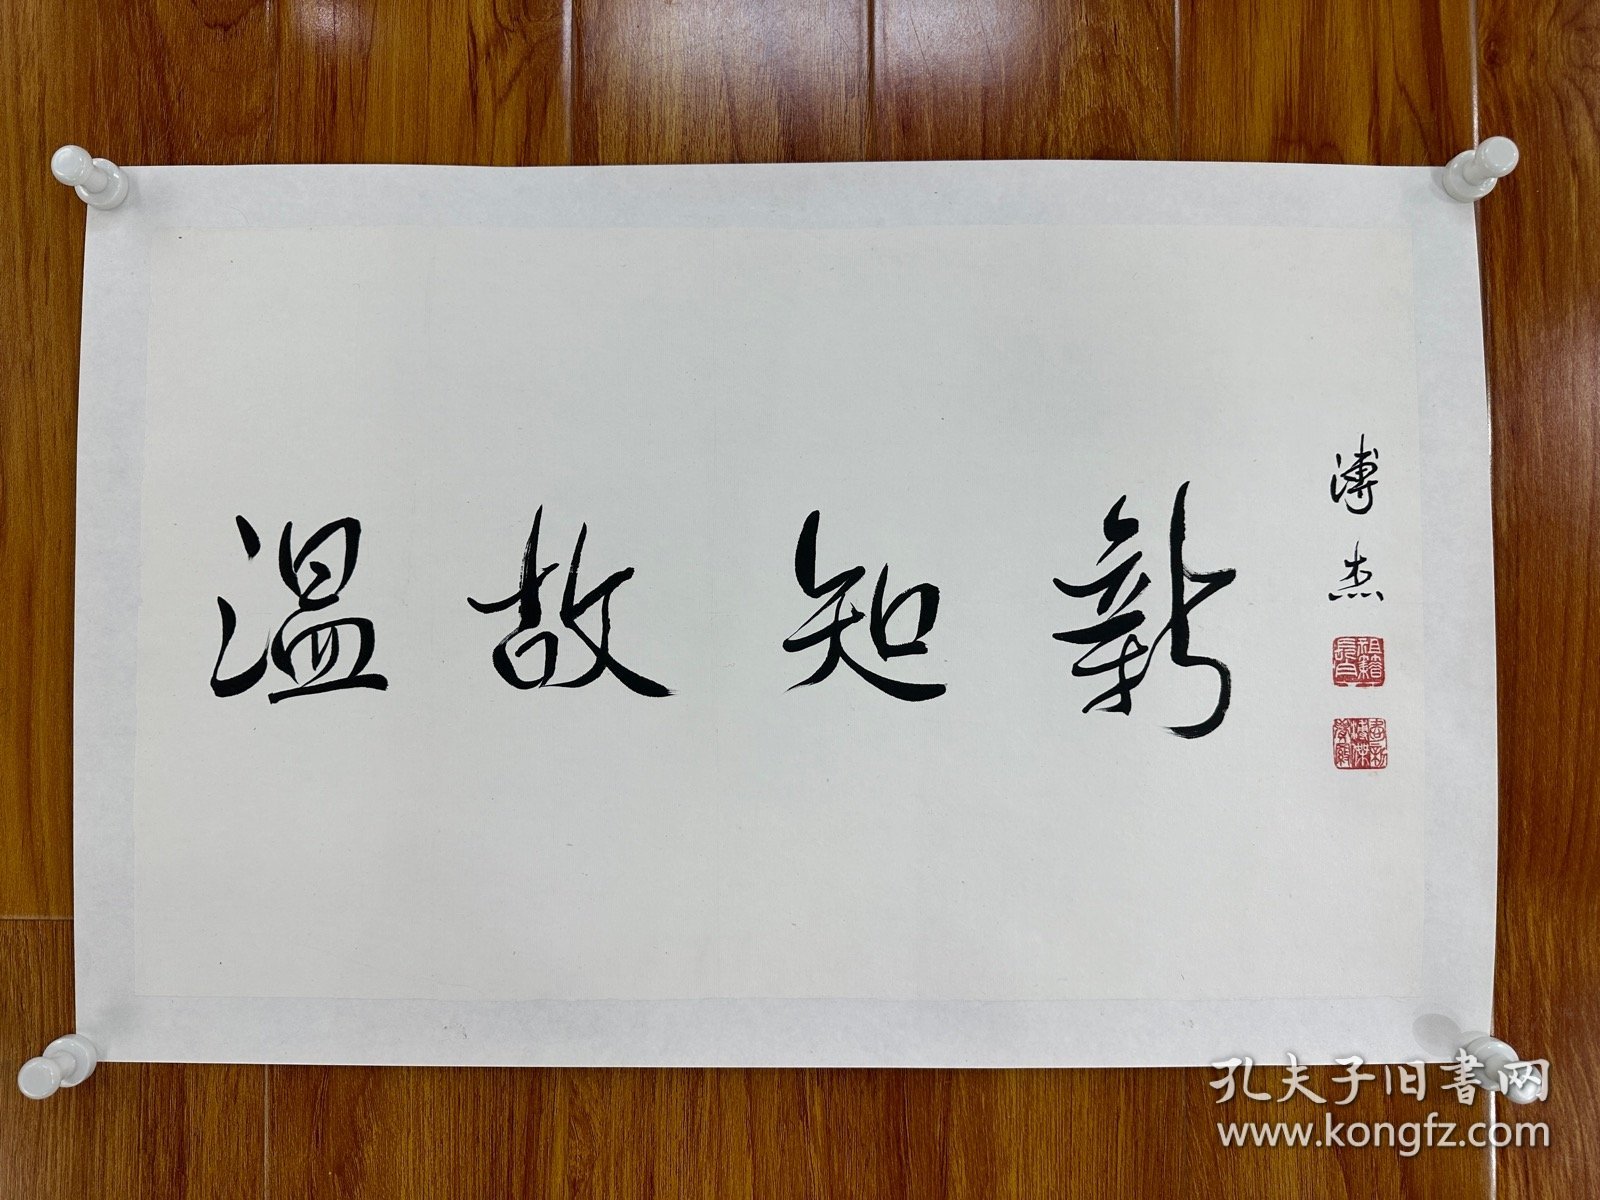 温故知新
溥杰
孔夫子旧書网
www.kongfz.com